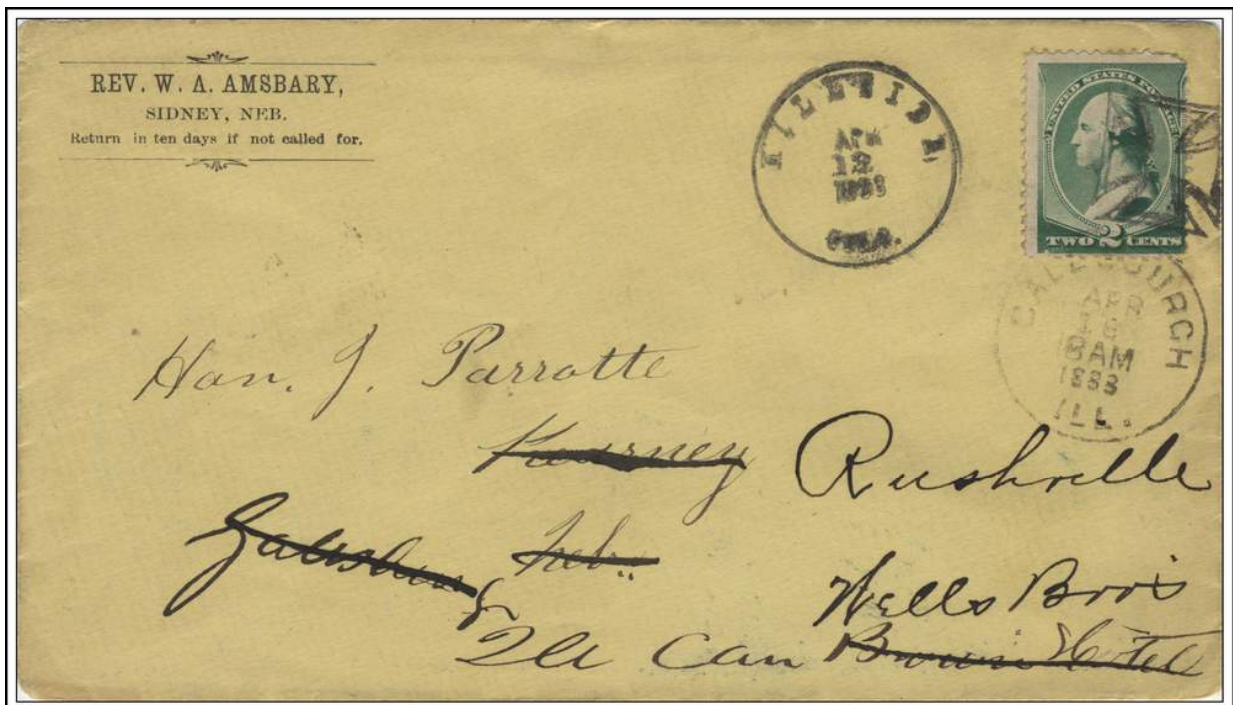 REV. W. A. AMSBARY,
SIDNEY, NEB.
Return in ten days if not called for.
HILLSIDE,
APR
12
1888
COLO.
UNITED STATES POSTAGE
TWO 2 CENTS
GALESBURGH
APR
16
8AM
1888
ILL.
Hon. J. Parrotte
Kearney
Rushville
Galesburg
Neb.
Wells Bro's
Ill Care Brown Hotel